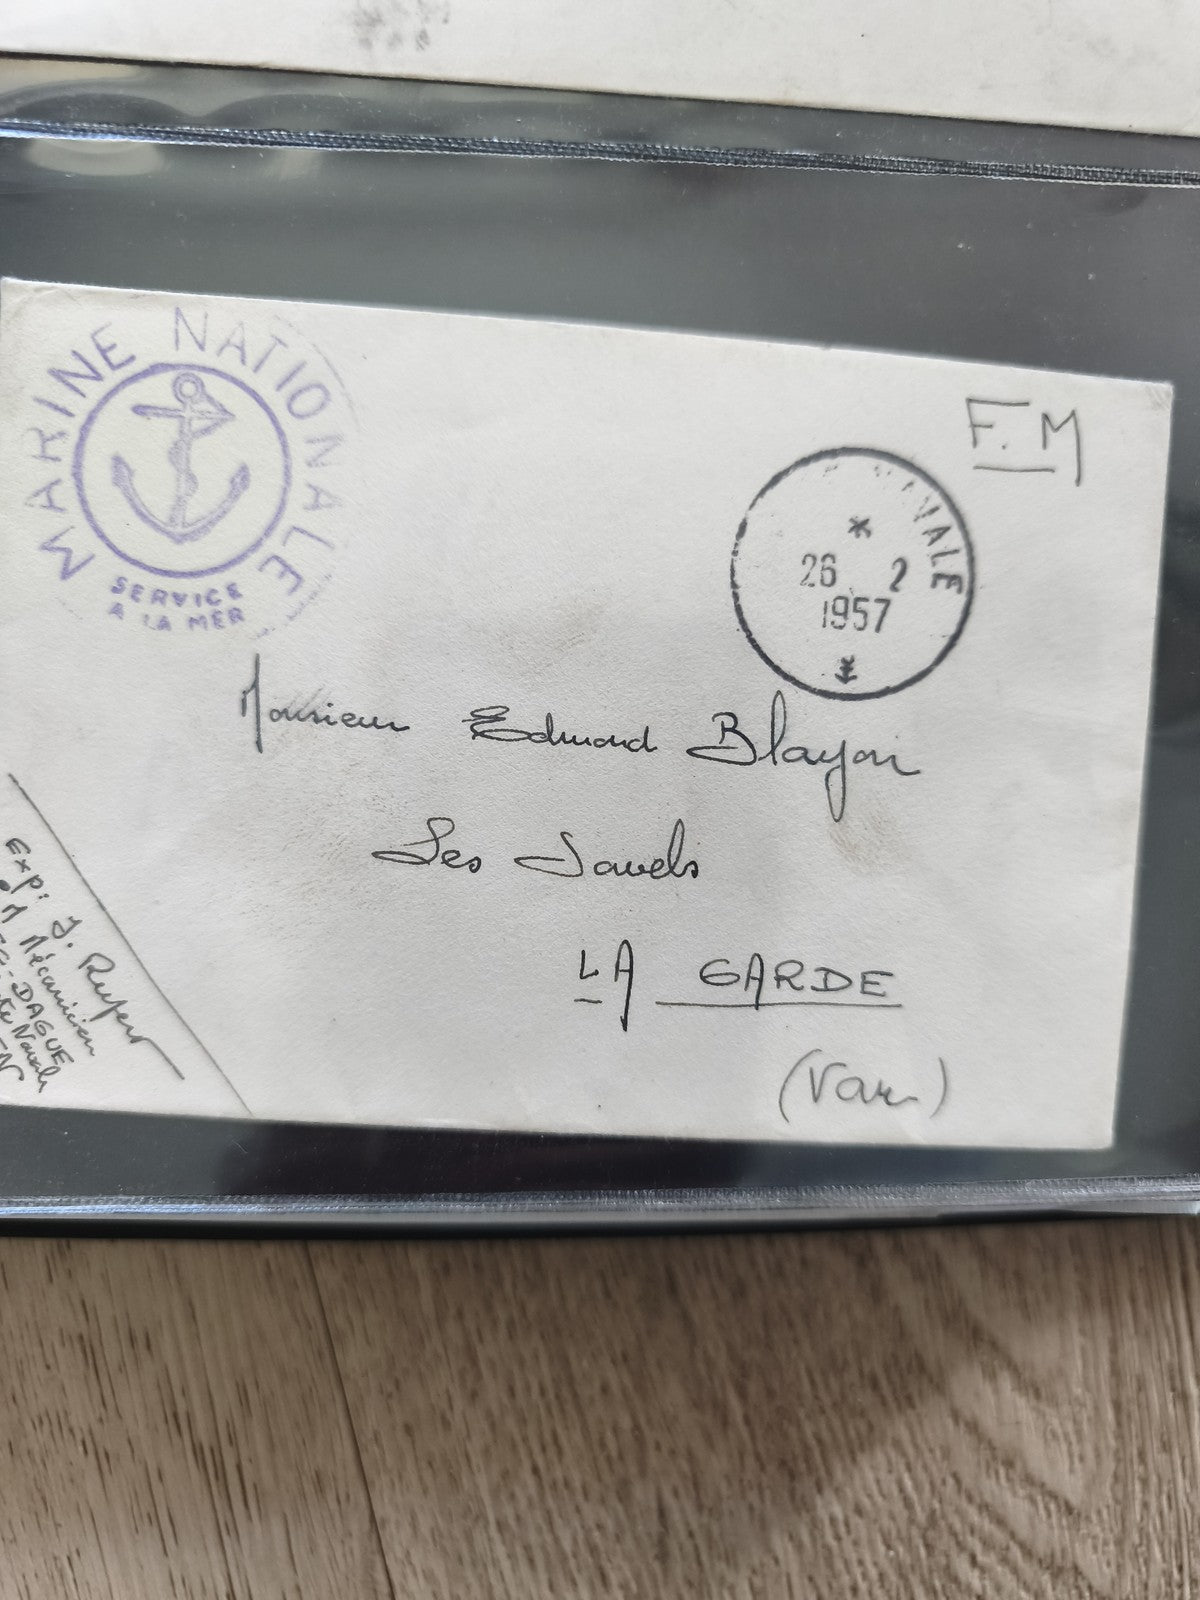 MARINE NATIONALE
SERVICE
A LA MER
F.M
NAVALE
26 2
1957
Monsieur Edmond Blayon
Les Savels
LA GARDE
(Var)
Exp: J.
Mécanicien
DAGUE
Navale